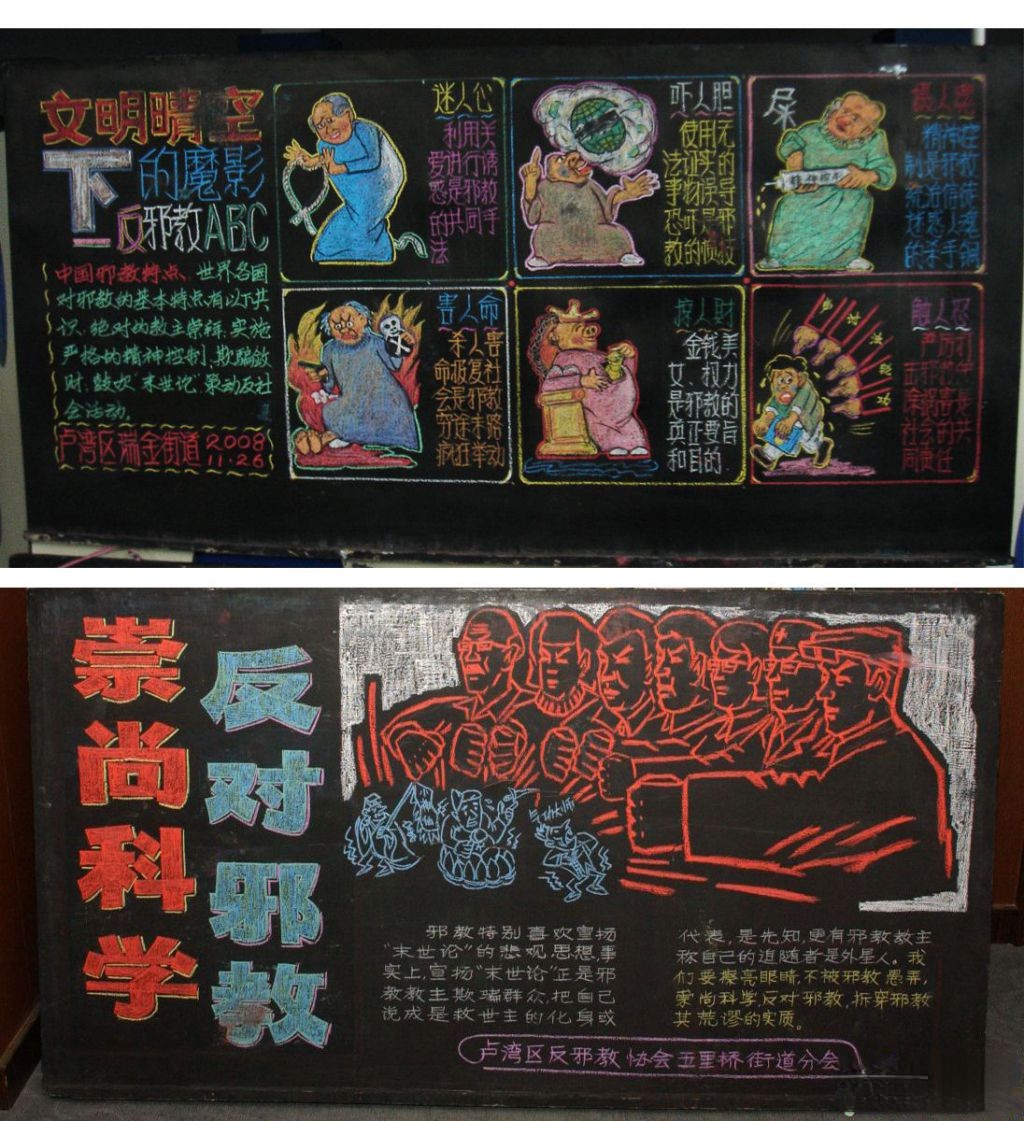 文明晴空
下的魔影
一反邪教ABC
中国邪教特点、世界各国
对邪教的基本特点有以下共
识、绝对的教主崇拜、实施
严格的精神控制、欺骗敛
财、鼓吹“末世论”、策动反社
会活动。
卢湾区瑞金街道 2008
11.26
迷人心
利用关
爱进行诱
惑是邪教
的共同手
法
吓人胆
使用无
法证实的
事物误导
恐吓是邪
教的
尿
精神控制
精神控
制是邪教
害人命
杀人害
命报复社
会是邪教
穷途末路
疯狂举动
掠人财
金钱美
女、权力
是邪教的
真正要旨
和目的.
严厉打
社会的共
同责任
崇尚科学
反对邪教
邪教特别喜欢宣扬
“末世论”的悲观思想,事
实上,宣扬“末世论”正是邪
教教主欺骗群众,把自己
说成是救世主的化身或
代表,是先知,更有邪教教主
称自己的追随者是外星人。我
们要擦亮眼睛,不被邪教愚弄,
崇尚科学,反对邪教,拆穿邪教
其荒谬的实质。
卢湾区反邪教协会五里桥街道分会